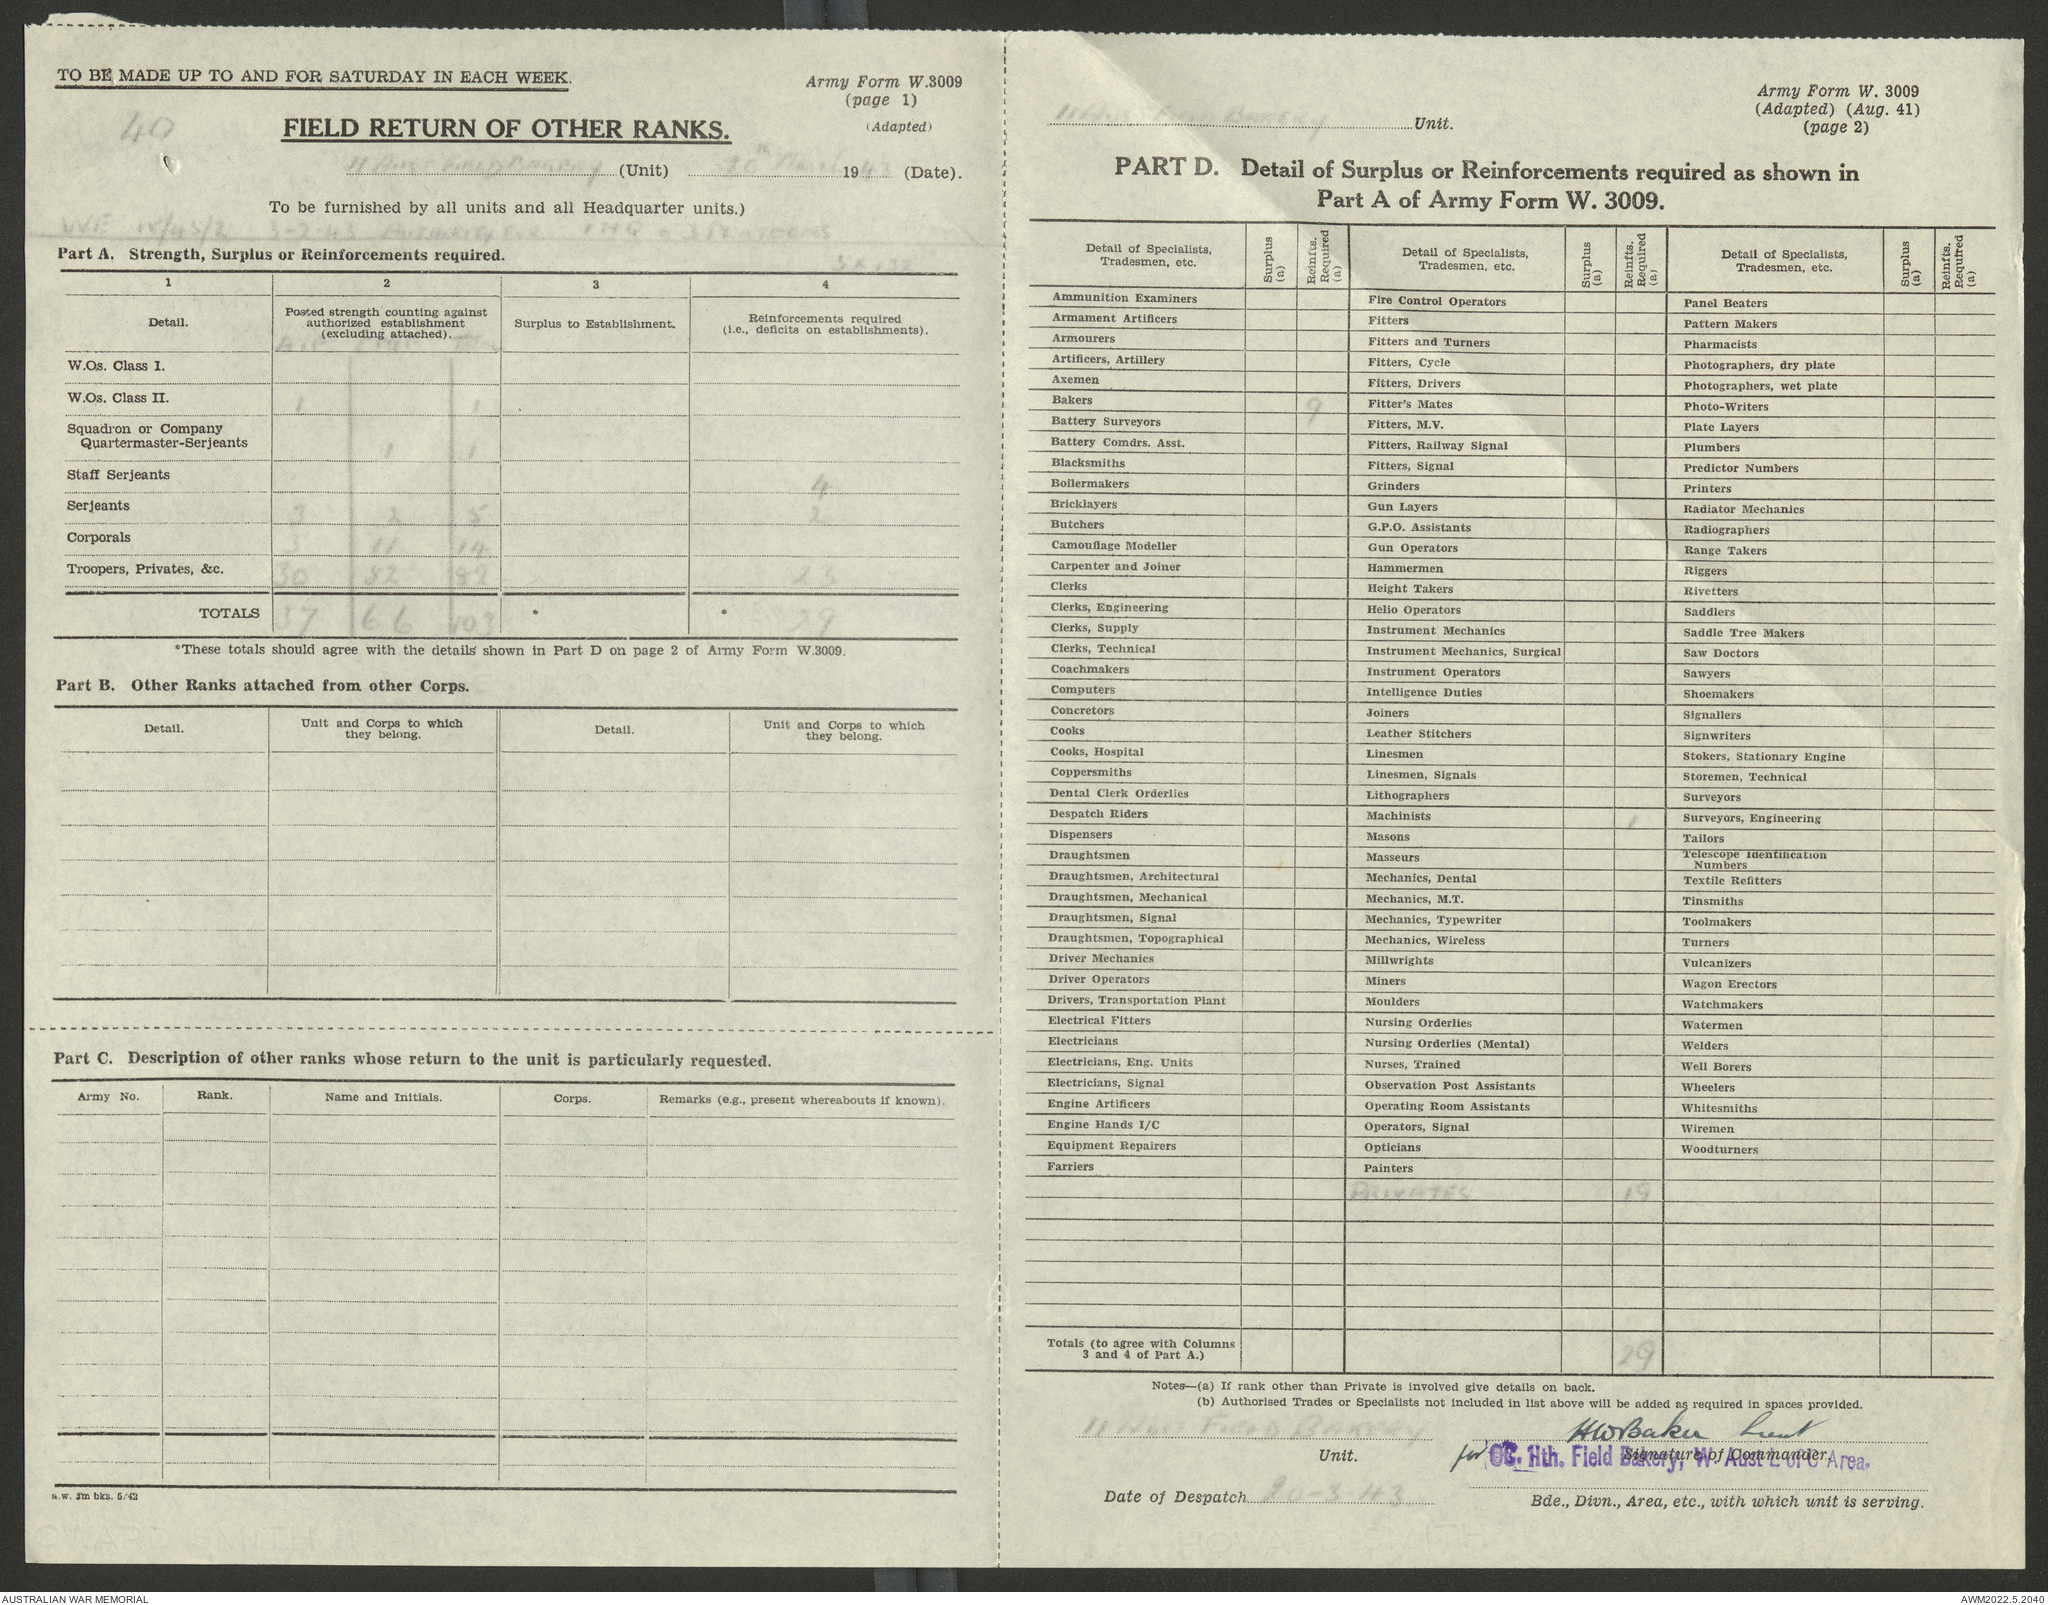 TO BE MADE UP TO AND FOR SATURDAY IN EACH WEEK.
Army Form W.3009
(page 1)
(Adapted)
40
FIELD RETURN OF OTHER RANKS.
11 AUST FIELD BAKERY (Unit) 20th March 1943 (Date).
To be furnished by all units and all Headquarter units.)
WE 3-2-43
Part A. Strength, Surplus or Reinforcements required.
1 2 3 4
Detail. Posted strength counting against authorized establishment (excluding attached). Surplus to Establishment. Reinforcements required (i.e., deficits on establishments).
W.Os. Class I.
W.Os. Class II. 1 1
Squadron or Company
Quartermaster-Serjeants 1 1
Staff Serjeants 4
Serjeants 3 2 5 2
Corporals 3 11 14
Troopers, Privates, &c. 30 52 82 23
TOTALS 37 66 103 * * 29
*These totals should agree with the details shown in Part D on page 2 of Army Form W.3009.
Part B. Other Ranks attached from other Corps.
Detail. Unit and Corps to which they belong. Detail. Unit and Corps to which they belong.
Part C. Description of other ranks whose return to the unit is particularly requested.
Army No. Rank. Name and Initials. Corps. Remarks (e.g., present whereabouts if known).
a.w. 3m bks. 5/42
Army Form W. 3009
(Adapted) (Aug. 41)
(page 2)
11 Aust FIELD BAKERY Unit.
PART D. Detail of Surplus or Reinforcements required as shown in
Part A of Army Form W. 3009.
Detail of Specialists, Tradesmen, etc. Surplus (a) Reinfts. Required (a) Detail of Specialists, Tradesmen, etc. Surplus (a) Reinfts. Required (a) Detail of Specialists, Tradesmen, etc. Surplus (a) Reinfts. Required (a)
Ammunition Examiners Fire Control Operators Panel Beaters
Armament Artificers Fitters Pattern Makers
Armourers Fitters and Turners Pharmacists
Artificers, Artillery Fitters, Cycle Photographers, dry plate
Axemen Fitters, Drivers Photographers, wet plate
Bakers 9 Fitter's Mates Photo-Writers
Battery Surveyors Fitters, M.V. Plate Layers
Battery Comdrs. Asst. Fitters, Railway Signal Plumbers
Blacksmiths Fitters, Signal Predictor Numbers
Boilermakers Grinders Printers
Bricklayers Gun Layers Radiator Mechanics
Butchers G.P.O. Assistants Radiographers
Camouflage Modeller Gun Operators Range Takers
Carpenter and Joiner Hammermen Riggers
Clerks Height Takers Rivetters
Clerks, Engineering Helio Operators Saddlers
Clerks, Supply Instrument Mechanics Saddle Tree Makers
Clerks, Technical Instrument Mechanics, Surgical Saw Doctors
Coachmakers Instrument Operators Sawyers
Computers Intelligence Duties Shoemakers
Concretors Joiners Signallers
Cooks Leather Stitchers Signwriters
Cooks, Hospital Linesmen Stokers, Stationary Engine
Coppersmiths Linesmen, Signals Storemen, Technical
Dental Clerk Orderlies Lithographers Surveyors
Despatch Riders Machinists 1 Surveyors, Engineering
Dispensers Masons Tailors
Draughtsmen Masseurs Telescope Identification Numbers
Draughtsmen, Architectural Mechanics, Dental Textile Refitters
Draughtsmen, Mechanical Mechanics, M.T. Tinsmiths
Draughtsmen, Signal Mechanics, Typewriter Toolmakers
Draughtsmen, Topographical Mechanics, Wireless Turners
Driver Mechanics Millwrights Vulcanizers
Driver Operators Miners Wagon Erectors
Drivers, Transportation Plant Moulders Watchmakers
Electrical Fitters Nursing Orderlies Watermen
Electricians Nursing Orderlies (Mental) Welders
Electricians, Eng. Units Nurses, Trained Well Borers
Electricians, Signal Observation Post Assistants Wheelers
Engine Artificers Operating Room Assistants Whitesmiths
Engine Hands I/C Operators, Signal Wiremen
Equipment Repairers Opticians Woodturners
Farriers Painters
PRIVATES 19
Totals (to agree with Columns
3 and 4 of Part A.) 29
Notes—(a) If rank other than Private is involved give details on back.
(b) Authorised Trades or Specialists not included in list above will be added as required in spaces provided.
11 Aust FIELD BAKERY HWBaker Lieut
Unit. Signature of Commander.
for OC. 11th. Field Bakery, W. Aust L of C Area.
Date of Despatch 20-3-43
Bde., Divn., Area, etc., with which unit is serving.
AUSTRALIAN WAR MEMORIAL
AWM2022.5.2040